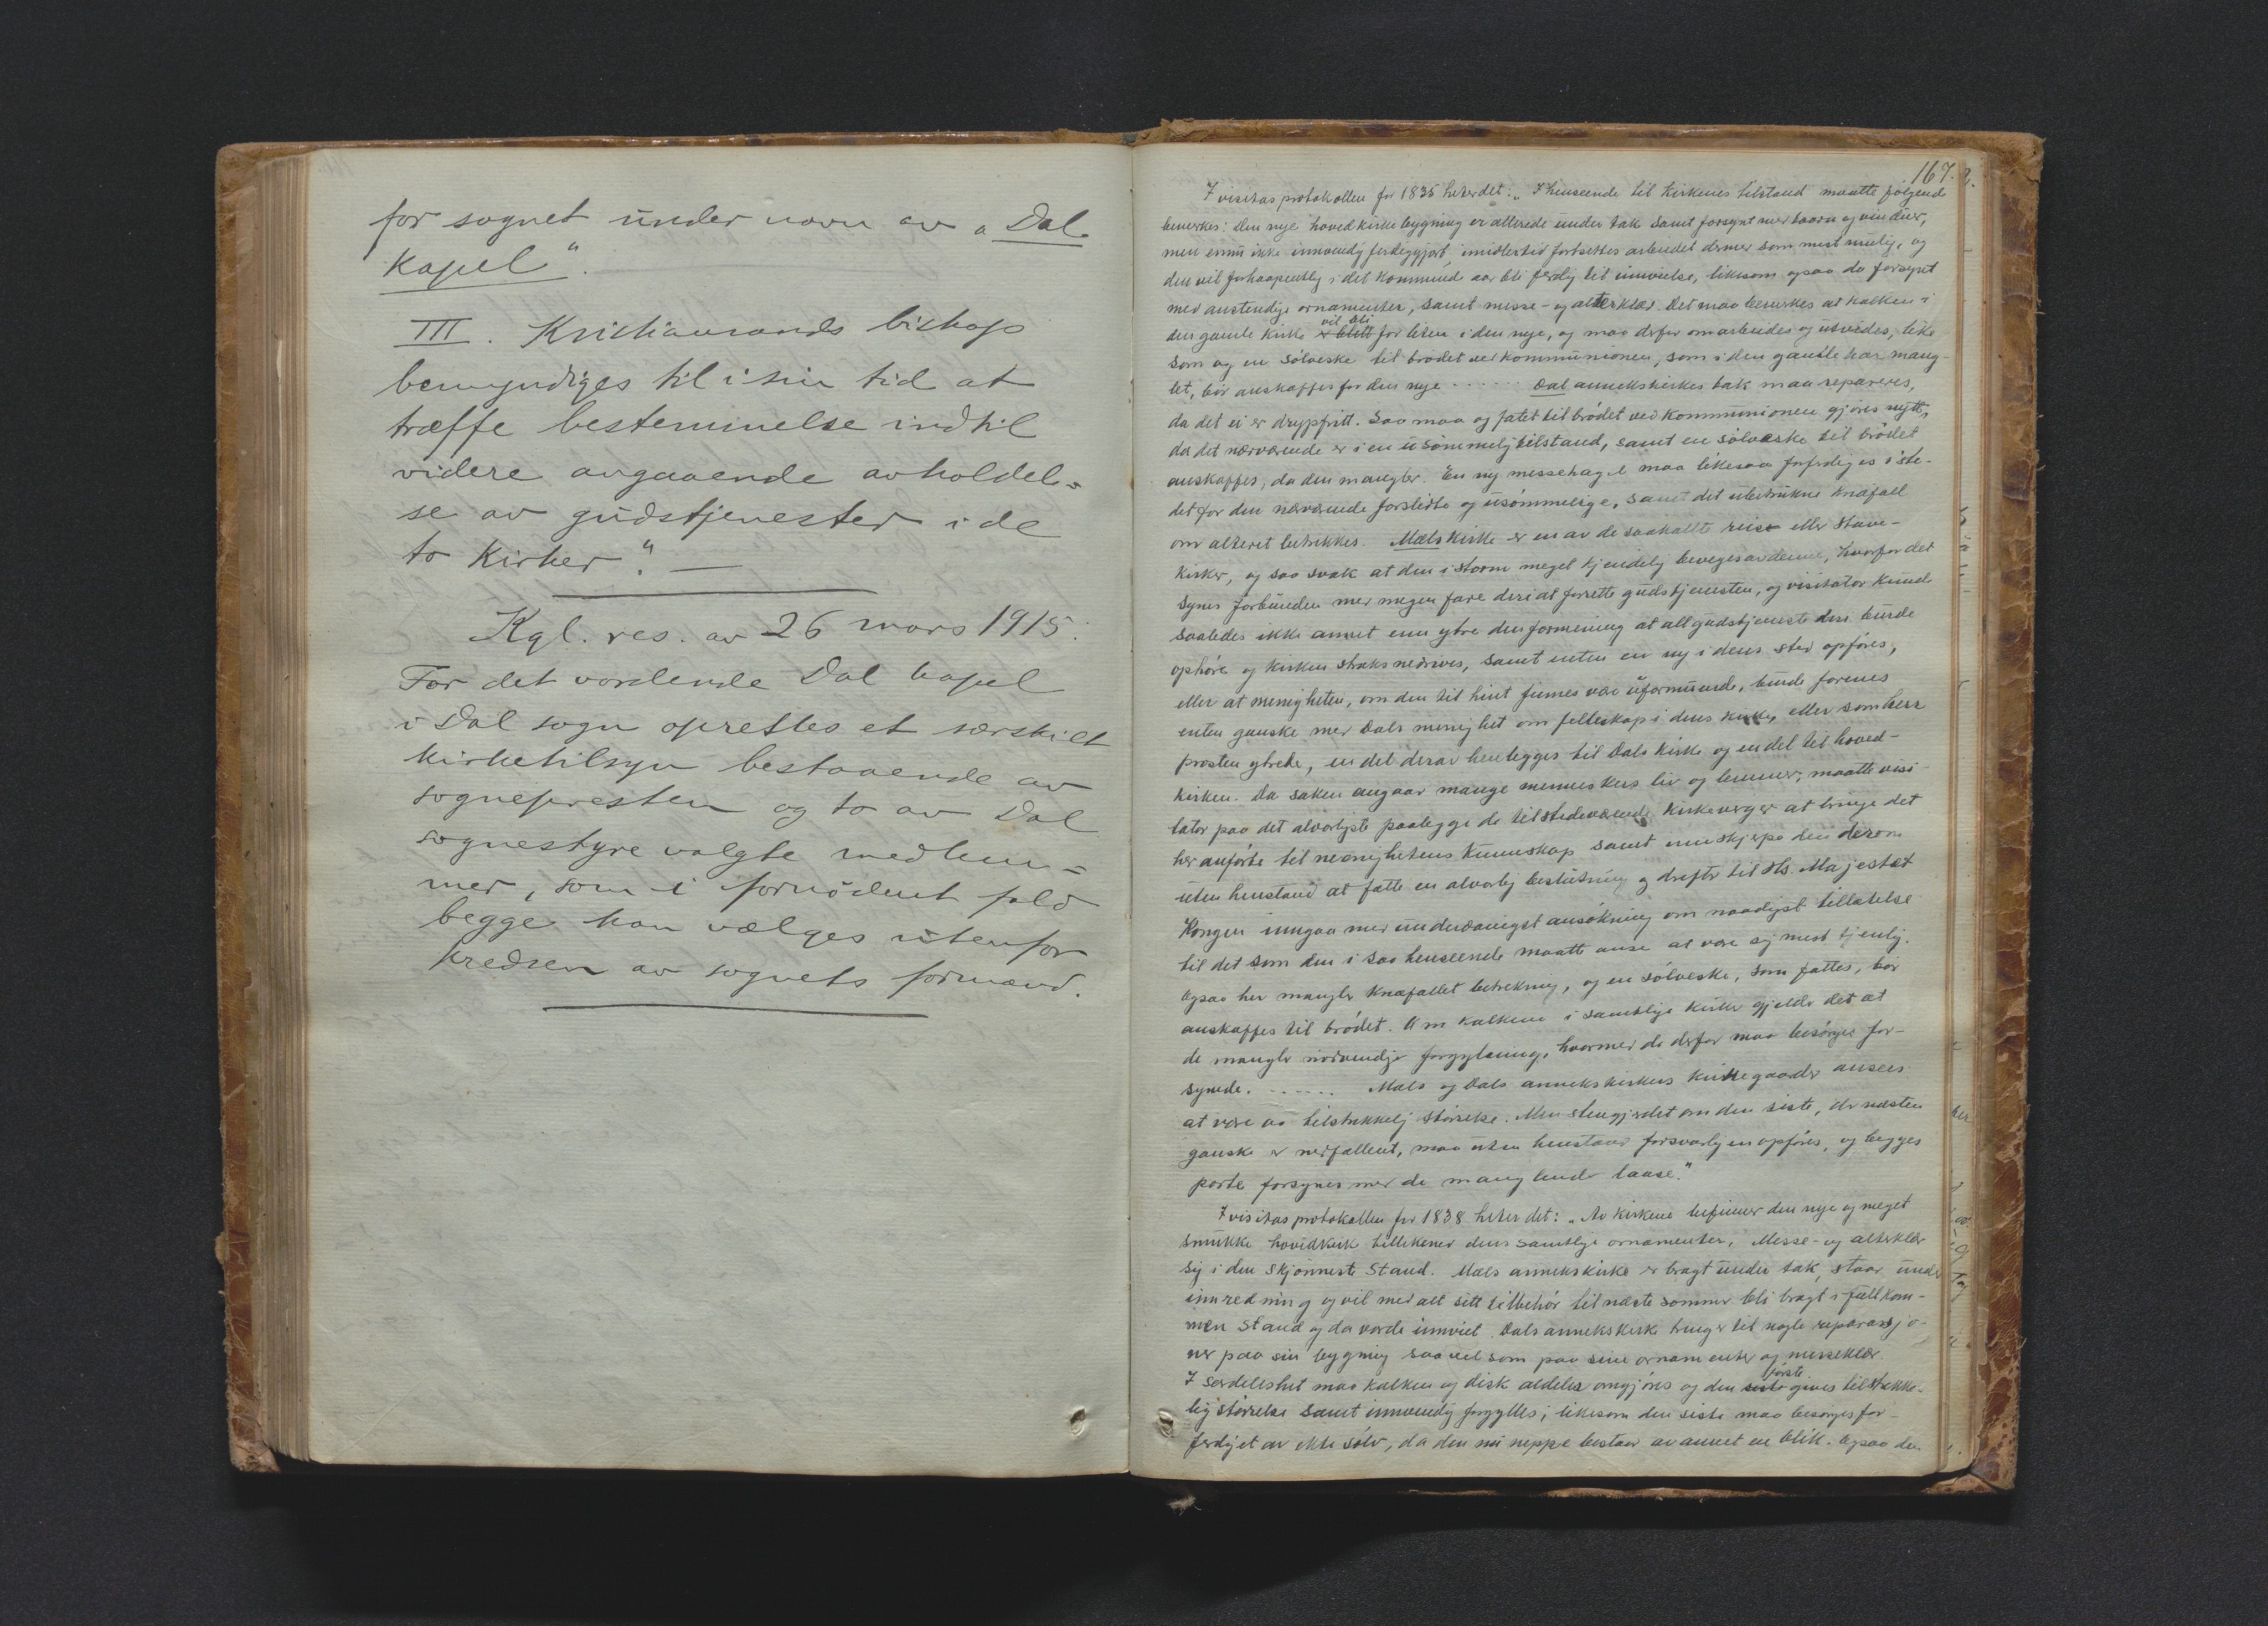 for sognet under navn av „Dal
Kapel“.
III. Kristianssands biskop
bemyndiges til i sin tid at
træffe bestemmelse indtil
videre angaaende avholdel-
se av gudstjenester i de
to Kirker.“ —
Kgl. res. av 26 mars 1915.
For det vordende Dal kapel
i Dal sogn oprettes et særskilt
kirketilsyn bestaaende av
sognepresten og to av Dal
sognestyre valgte medlem-
mer, som i fornödent fald
begge kan vælges utenfor
kredsen av sognets formænd.
167.
I visitasprotokollen for 1835 heter det: „I henseende til kirkenes tilstand maatte følgende
bemerkes: Den nye hovedkirkebygning er allerede under tak samt forsynt med taarn og vinduer,
men ennu ikke innvendig ferdiggjort, imidlertid fortsettes arbeidet dermed som mest mulig, og
den vil forhaapentlig i det kommende aar bli ferdig til innvielse, likesom ogsaa da forsynt
med anstendige ornamenter, samt messe- og alterklær. Det maa bemerkes at kalken i
den gamle kirke er blitt vil bli for liten i den nye, og maa derfor omarbeides og utvides, like
som og en sölveske til brödet ved kommunionen, som i den gamle har mang-
let, bör anskaffes for den nye ...... Dal annekskirkes tak maa repareres,
da det ei er dryppfritt. Saa maa og fatet til brödet ved kommunionen gjöres nytt,
da det nærværende er i en usömmelig tilstand, samt en sölveske til brödet
anskaffes, da den mangler. En ny messehagel maa likesaa forferdiges i ste-
det for den nærværende forslidte og usömmelige, samt det ubetrukne knæfall
om alteret betrekkes. Mæls kirke er en av de saakallte reise eller stave-
kirker, og saa svak at den i storm meget kjendelig beveges av denne, hvorfor det
synes forbunden med megen fare deri at forrette gudstjenesten, og visitator kunde
saaledes ikke annet enn ytre den formening at all gudstjeneste deri burde
ophöre og kirken straks nedrives, samt enten en ny i dens sted opföres,
eller at menigheten, om den til hint finnes være uformuende, burde forenes
enten ganske med Dals menighet om felleskap i dens kirke, eller som herr
prosten ytrede, en del derav henlegges til Dals kirke og en del til hoved-
kirken. Da saken angaar mange menneskers liv og lemmer, maatte visi-
tator paa det alvorligste paalegge de tilstedeværende kirkeverger at bringe det
her anförte til menighetens kunnskap samt innskjerpe den derom
uten henstand at fatte en alvorlig beslutning og derefter til Hs. Majestæt
Kongen inngaa med underdanigst ansökning om naadigst tillatelse
til det som den i saa henseende maatte anse at være sig mest tjenlig.
Ogsaa her mangler knæfallet betrekning, og en sölveske, som fattes, bör
anskaffes til brödet. Om kalkene i samtlige kirker gjelder det at
de mangler nödvendig forgyldning, hvormed de derfor maa besörges for-
synede. ...... Mæls og Dals annekskirkers kirkegaarder ansees
at være av tilstrekkelig störrelse. Men stengjerdet om den siste, der næsten
ganske er nedfallent, maa uten henstand forsvarlig enopföres, og begges
porte forsynes med de manglende laase.“
I visitasprotokollen for 1838 heter det: „Av kirkene befinner den nye og meget
smukke hovedkirke tillikemed dens samtlige ornamenter, Messe- og alterklær
sig i den skjönneste Stand. Mæls annekskirke er bragt under tak, staar under
innredning og vil med alt sitt tilbehör til næste sommer bli bragt i fullkom-
men Stand og da vorde innviet. Dals annekskirke trenger til nogle reparasjo-
ner paa sin bygning saavel som paa sine ornamenter og messeklær.
I særdeleshet maa kalken og disk aldeles omgjöres og den siste förste gives tilstrekke-
lig störrelse samt innvendig forgylles; likesom den siste maa besörges for-
ferdiget av ekte sölv, da den nu neppe bestaar av annet en blik. Ogsaa den